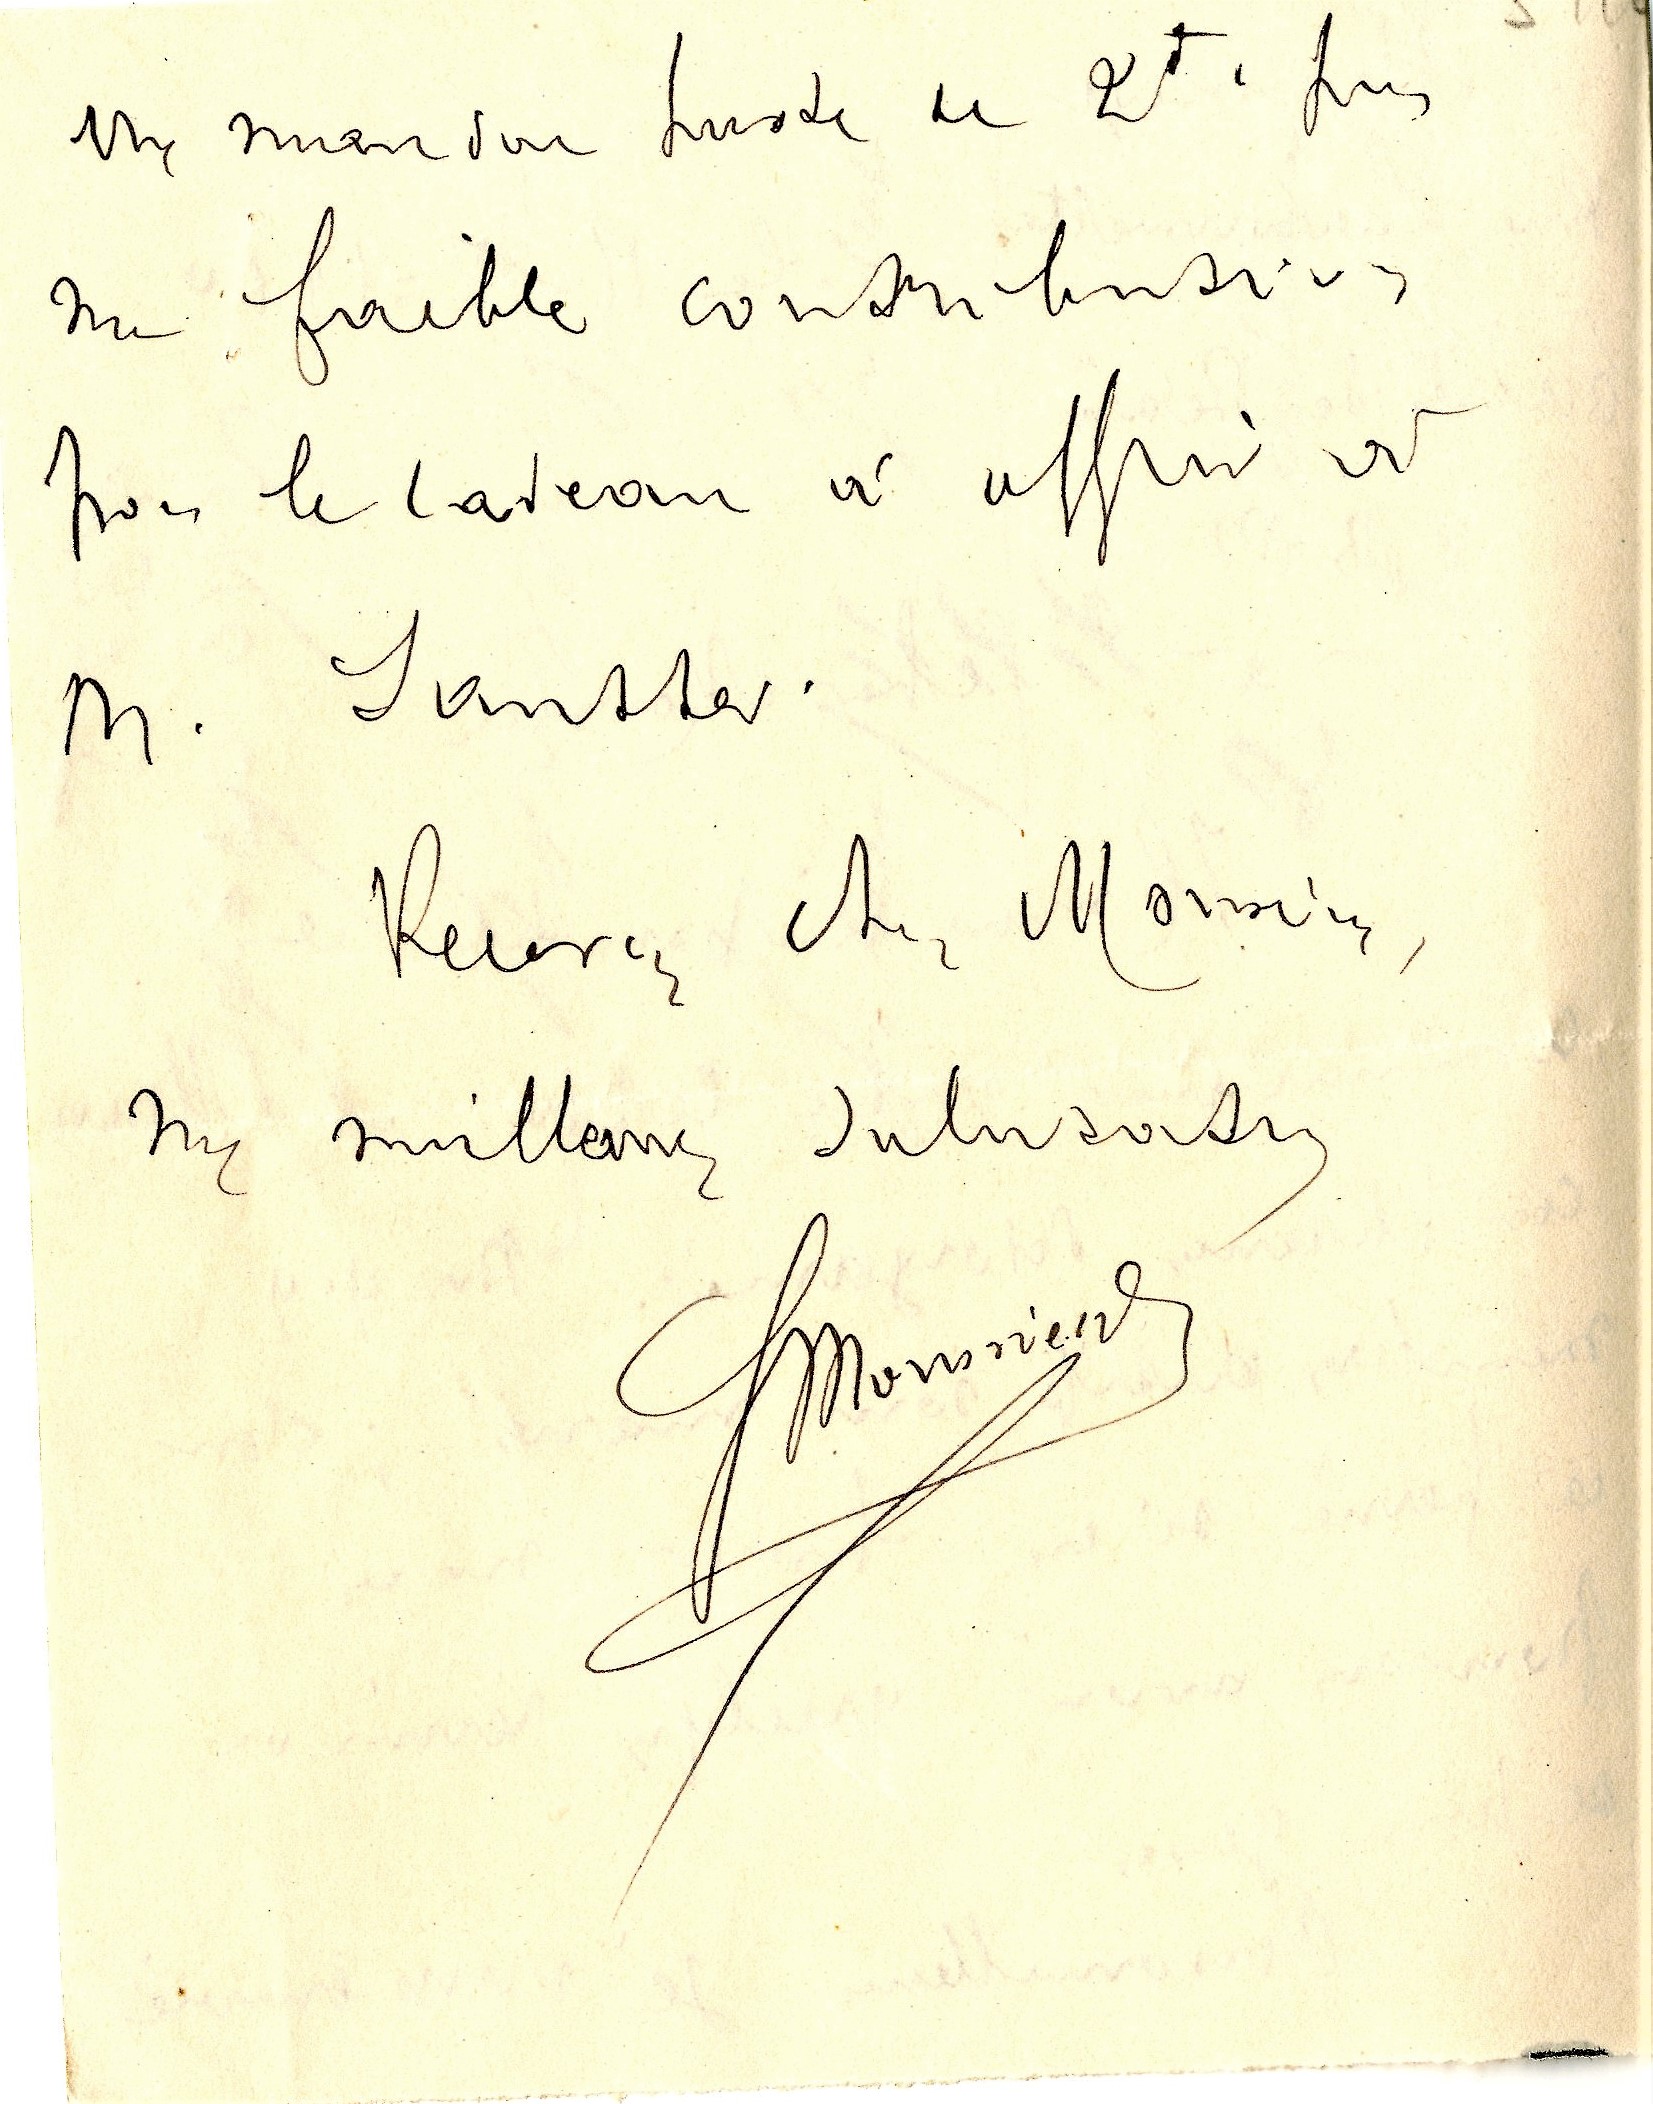 un mandat poste de 2f, pour
ma faible contribution
pour le cadeau à offrir à
M. Sautter.
Recevez cher Monsieur,
mes meilleures salutations